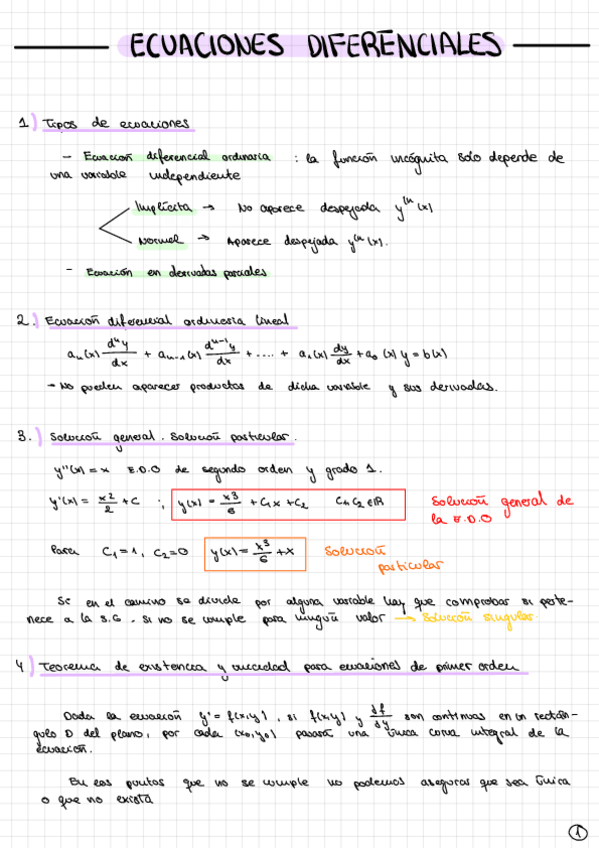 ECUACIONES DIFERENCIALES
1) Tipos de ecuaciones
– Ecuación diferencial ordinaria : la función incógnita solo depende de
una variable independiente
Implícita → No aparece despejada y⁽ⁿ(x)
Normal → Aparece despejada y⁽ⁿ(x).
– Ecuación en derivadas parciales
2.) Ecuación diferencial ordinaria lineal
aₙ(x) dⁿy/dx + aₙ₋₁(x) dⁿ⁻¹y/dx + .... + a₁(x) dy/dx + a₀(x) y = b(x)
→ No pueden aparecer productos de dicha variable y sus derivadas.
3.) Solución general. Solución particular.
y''(x) = x E.D.O de segundo orden y grado 1.
y'(x) = x2/2 + C ; y(x) = x3/6 + C₁x + C₂ C₁, C₂ ∈ ℝ Solución general de
la E.D.O
Para C₁ = 1, C₂ = 0 y(x) = x3/6 + x Solución
particular
Si en el camino se divide por alguna variable hay que comprobar si perte-
nece a la S.G. Si no se cumple para ningún valor → Solución singular.
4) Teorema de existencia y unicidad para ecuaciones de primer orden
Dada la ecuación y' = f(x,y), si f(x,y) y df/dy son continuas en un rectán-
gulo D del plano, por cada (x₀,y₀) pasará una única curva integral de la
ecuación.
En los puntos que no se cumple no podemos asegurar que sea única
o que no exista
1